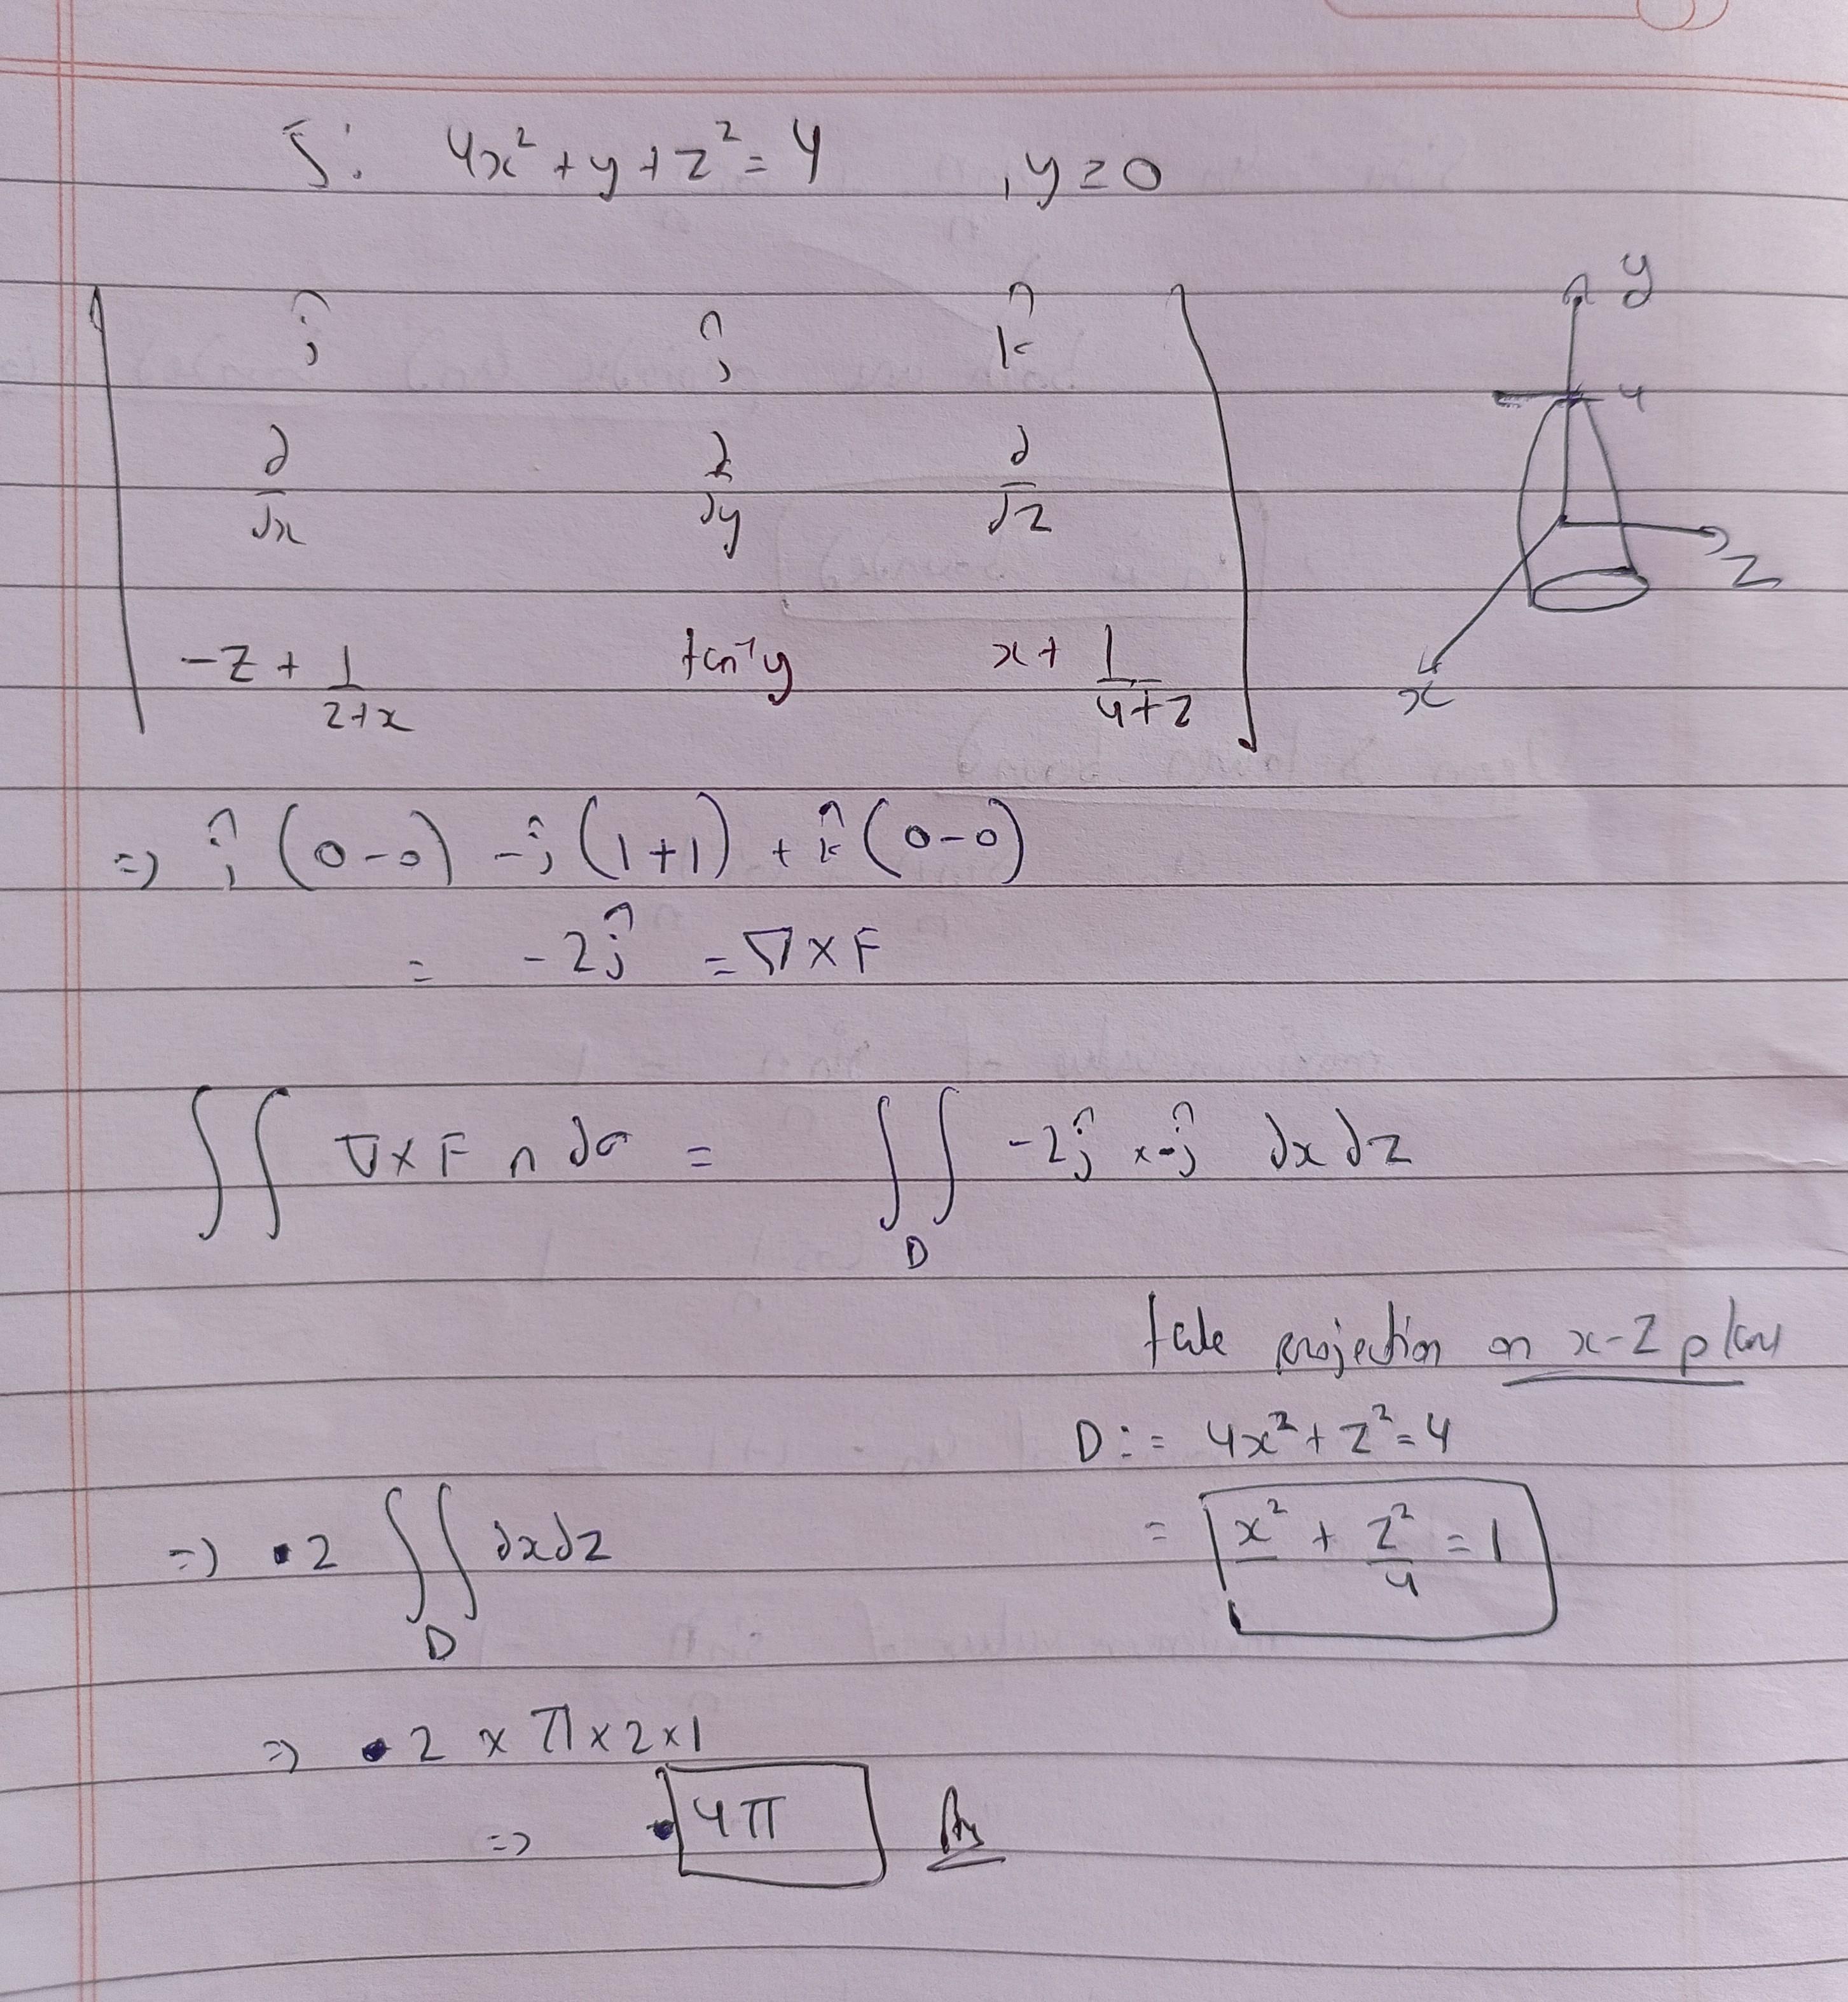 S: 4x² + y + z² = 4 , y ≥ 0
î ĵ k̂
∂/∂x ∂/∂y ∂/∂z
-z + 1/(2+x) tan⁻¹y x + 1/(4+z)
y
4
z
x
=> î (0-0) -ĵ (1+1) + k̂ (0-0)
= -2ĵ = ∇×F
∬ ∇×F n dσ = ∬_D -2ĵ × -ĵ dx dz
take projection on x-z plane
D := 4x² + z² = 4
=> 2 ∬_D dxdz
= x² + z²/4 = 1
=> 2 × π × 2 × 1
=> 4π Ans